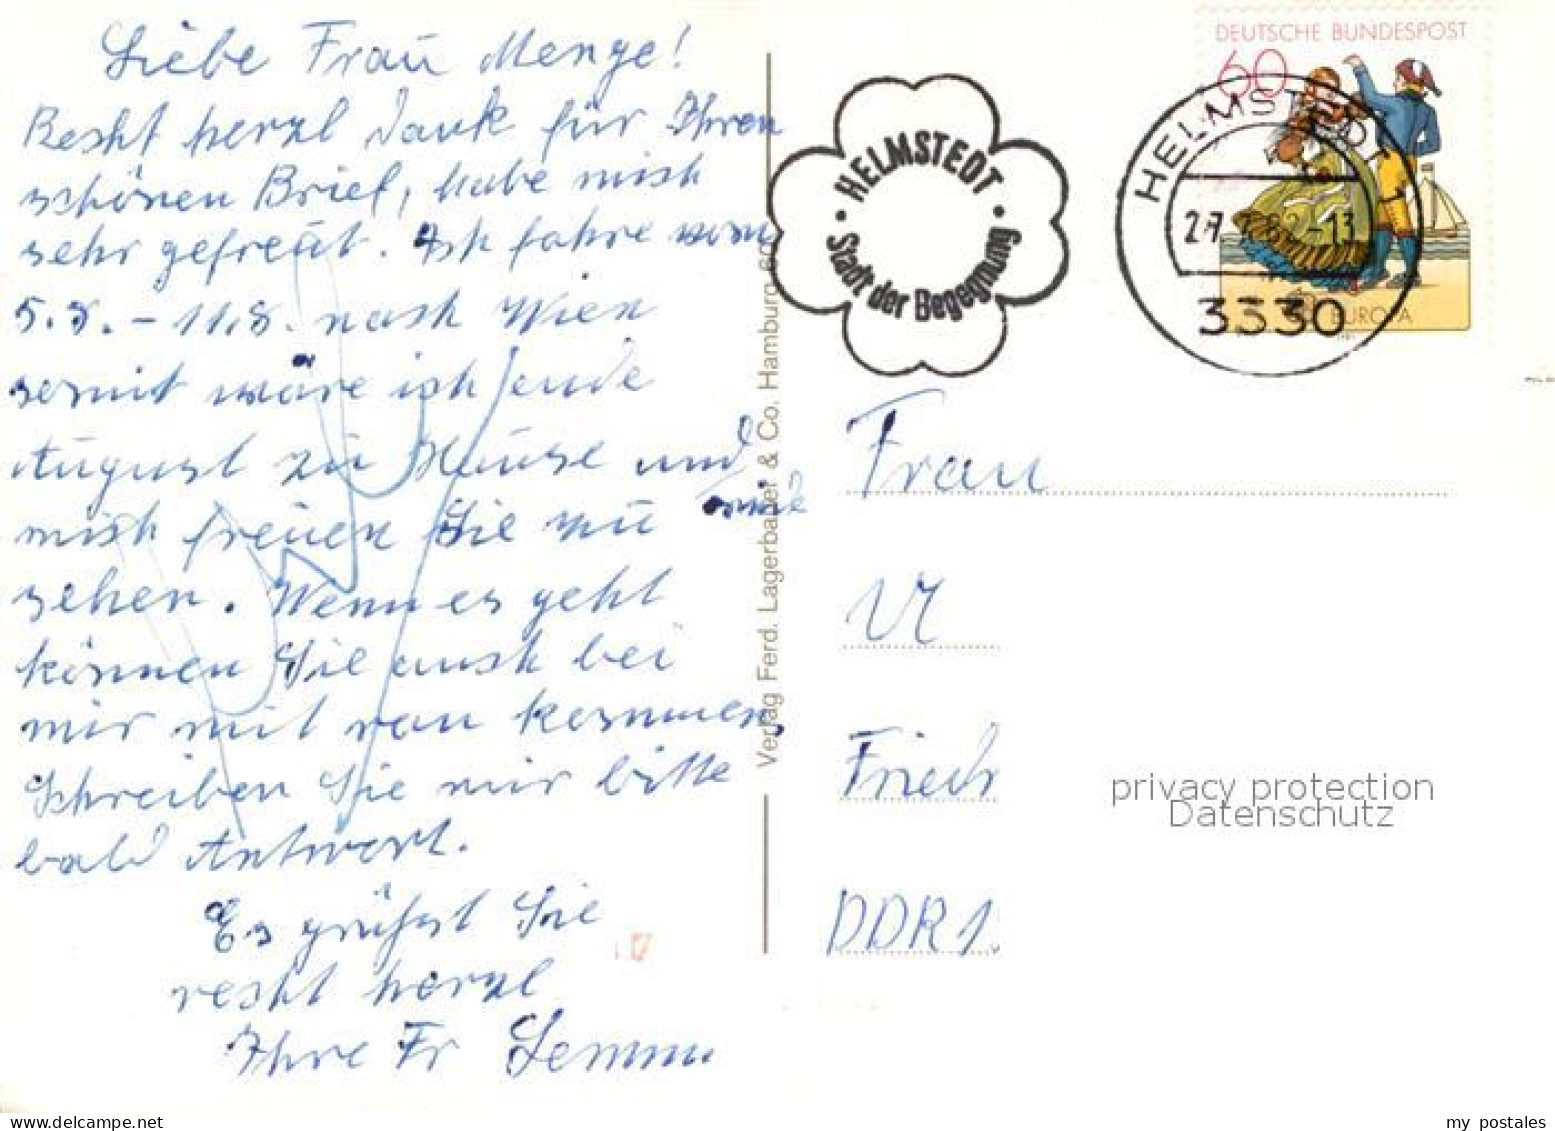 Liebe Frau Menge!
Recht herzl Dank für Ihren
schönen Brief, habe mich
sehr gefreut. Ich fahre vom
5.8. - 11.8. nach Wien
somit wäre ich ende
August zu Hause und
mich freuen Sie zu
sehen. Wenn es geht
können Sie auch bei
mir mit ran kommen,
Schreiben Sie mir bitte
bald Antwort.
Es grüßt Sie
recht herzl
Ihre Fr
Verlag Ferd. Lagerbauer & Co. Hamburg 60
HELMSTEDT
Stadt der Begegnung
DEUTSCHE BUNDESPOST
60
EUROPA
HELMSTEDT
3330
Frau
Friedr
DDR 1
privacy protection
Datenschutz
my postales